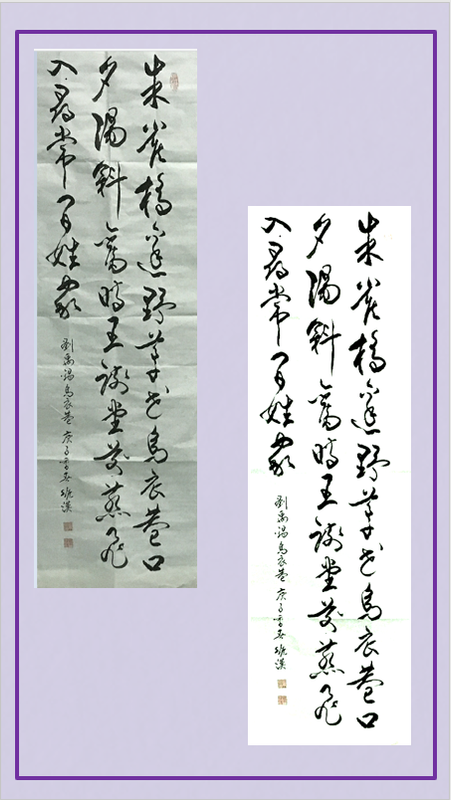 朱雀橋邊野草花烏衣巷口
夕陽斜舊時王謝堂前燕飛
入尋常百姓家
劉禹錫烏衣巷 庚子
朱雀橋邊野草花烏衣巷口
夕陽斜舊時王謝堂前燕飛
入尋常百姓家
劉禹錫烏衣巷 庚子